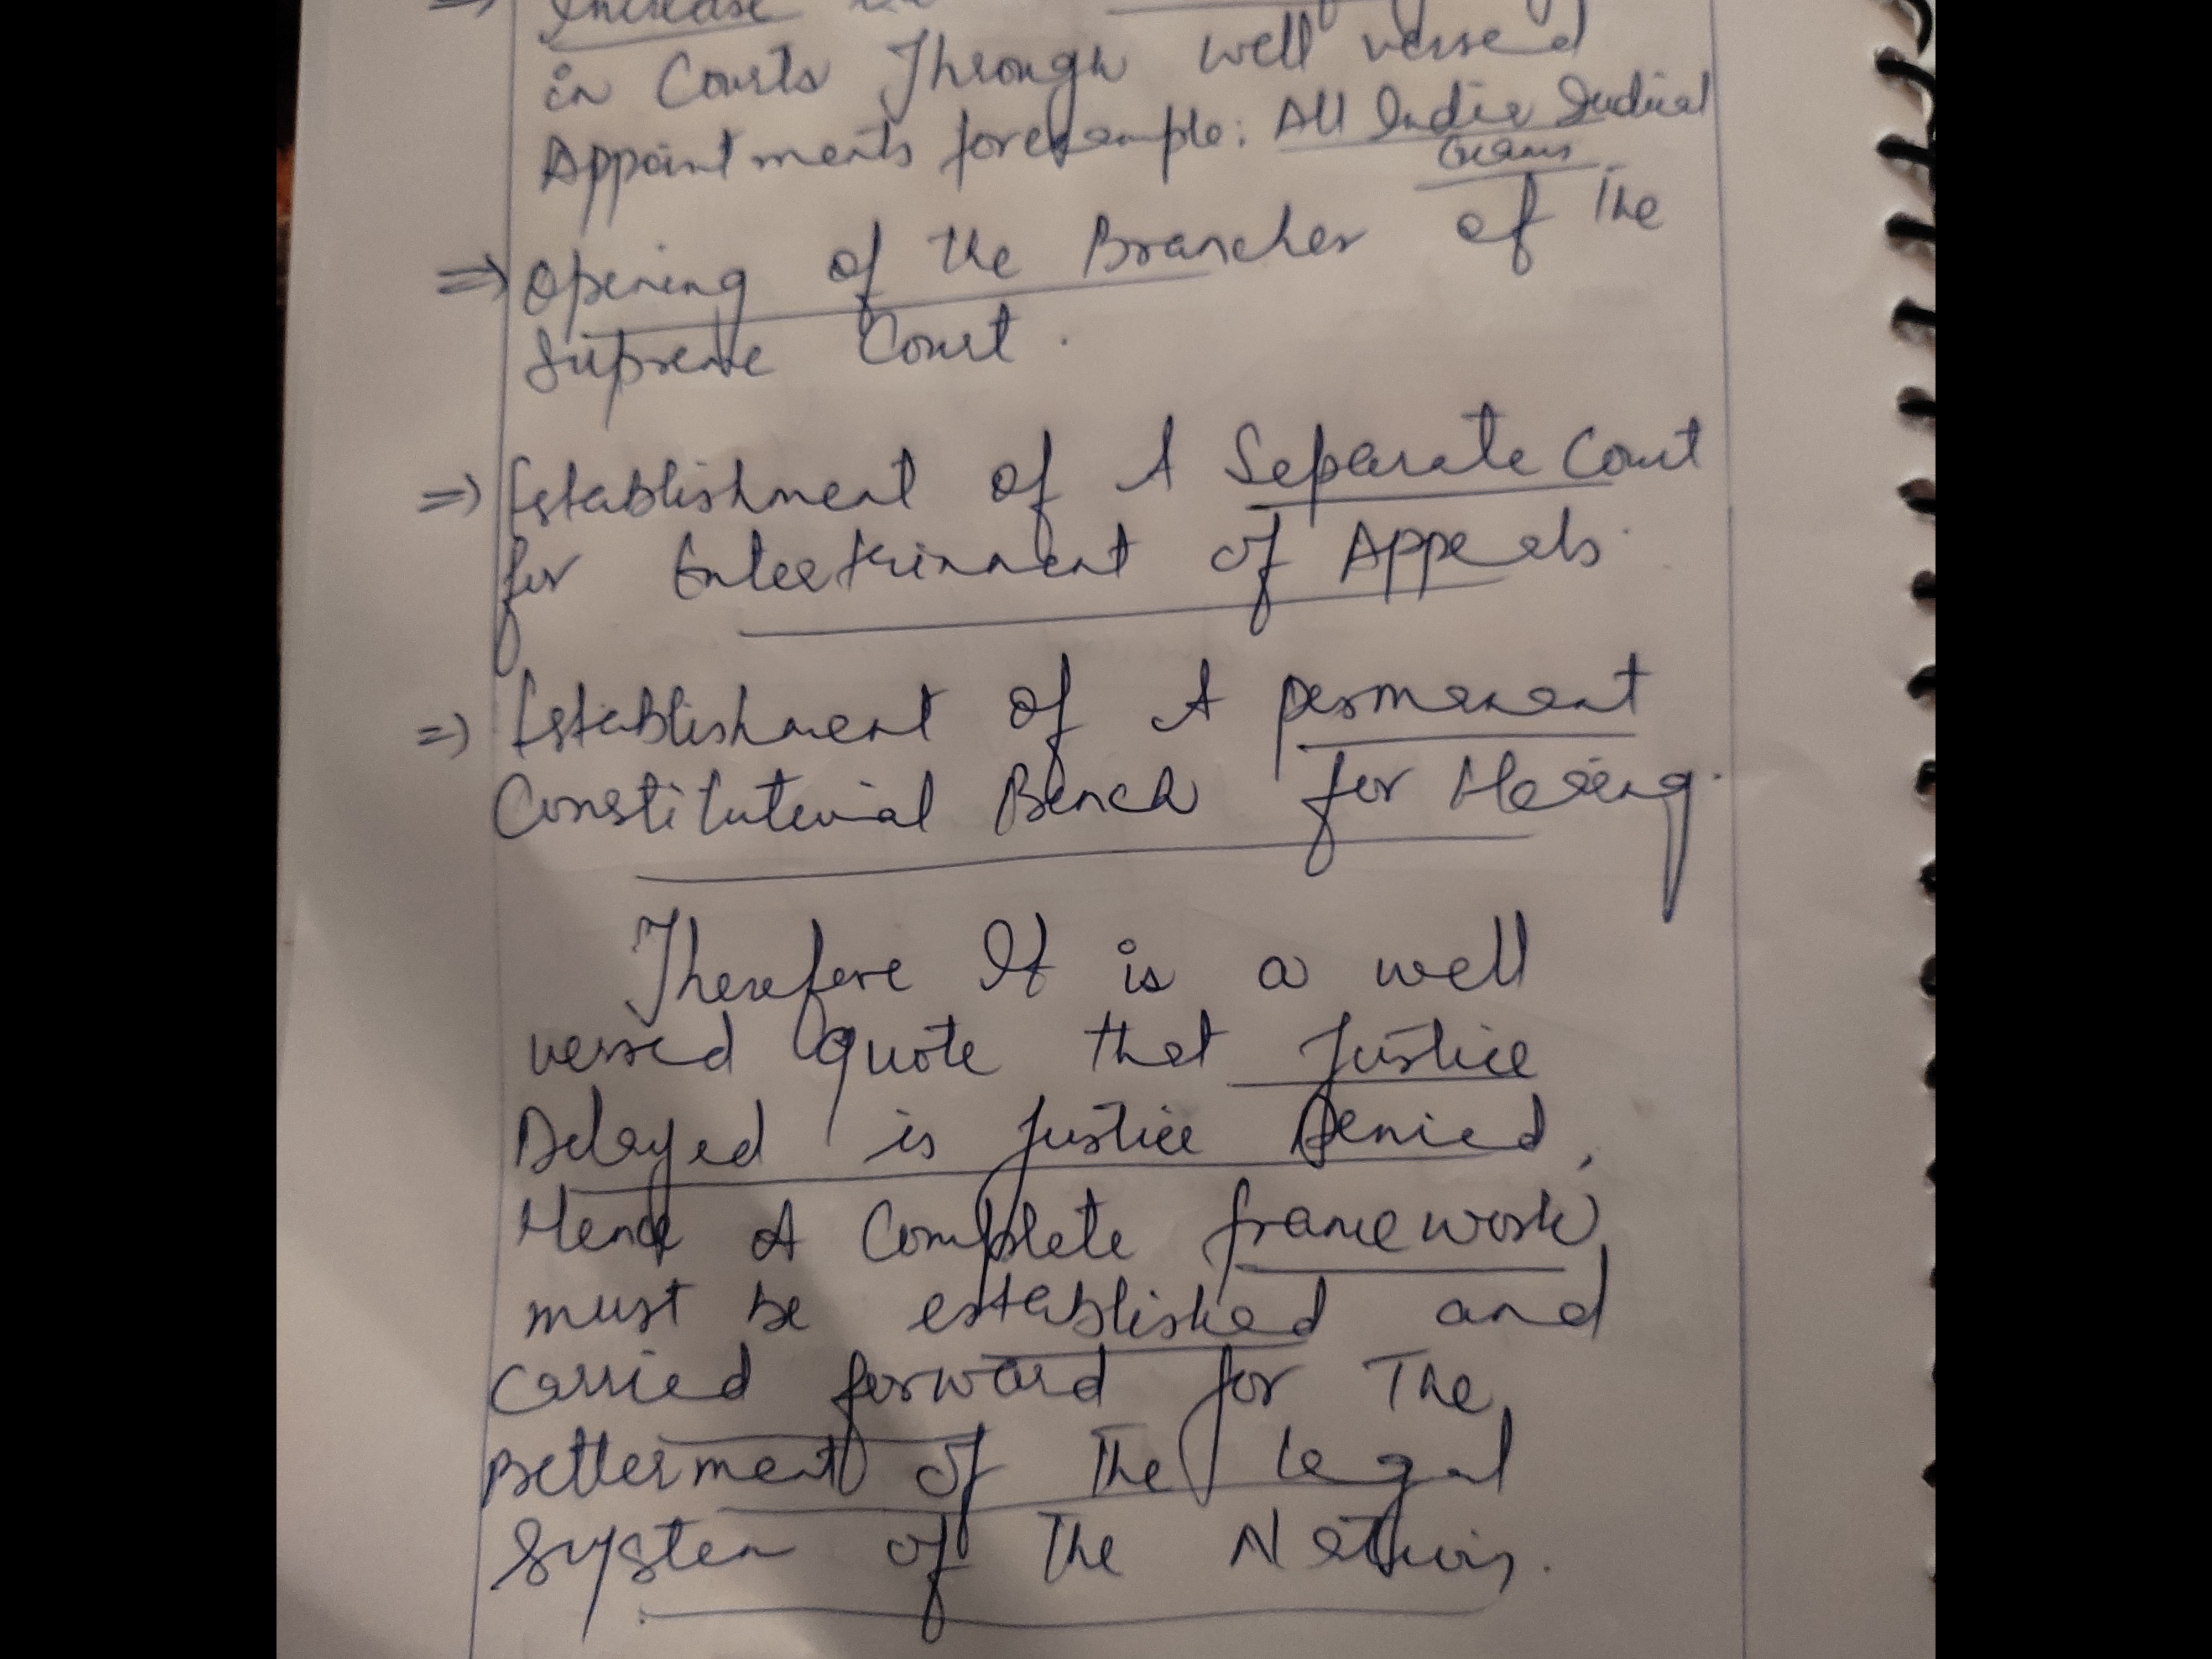 ⇒ Increase
in Courts Through well versed
Appointments for example: All India Judical
Exams.
⇒ Opening of the Branches of The
Supreme Court.
⇒ Establishment of A Separate Court
for Entertainment of Appeals.
⇒ Establishment of A permanent
Constitutuinal Bench for Hearing.
Therefore It is a well
versed quote that Justice
Delayed is Justice Denied,
Hence A Complete framework
must be established and
carried forward for The
Betterment of The legal
System of The Nation.